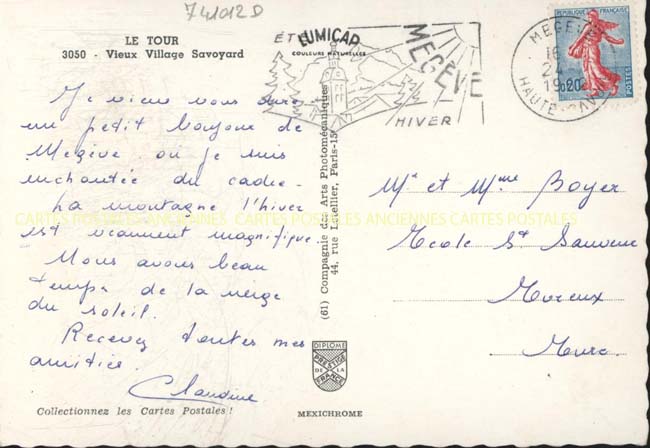 741012D
LE TOUR
3050 - Vieux Village Savoyard
ÉTÉ
LUMICAP
COULEURS NATURELLES
MEGÈVE
HIVER
MEGEVE
16
24
19
HAUTE-SAV
REPUBLIQUE FRANÇAISE
0.20
POSTES
Je viens vous dire
un petit bonjour de
Megève où je suis
enchantée du cadre.
La montagne l'hiver
est vraiment magnifique.
Nous avons beau
temps de la neige
du soleil.
Recevez toutes mes
amitiés.
Claudine
CARTES POSTALES ANCIENNES CARTES POSTALES ANCIENNES CARTES POSTALES
(61) Compagnie des Arts Photomécaniques
44, rue Letellier, Paris-15
Mr et Mme Boyer
Ecole St Sauveur
Evreux
Eure
DIPLOME
PRESTIGE
DE LA
FRANCE
Collectionnez les Cartes Postales !
MEXICHROME